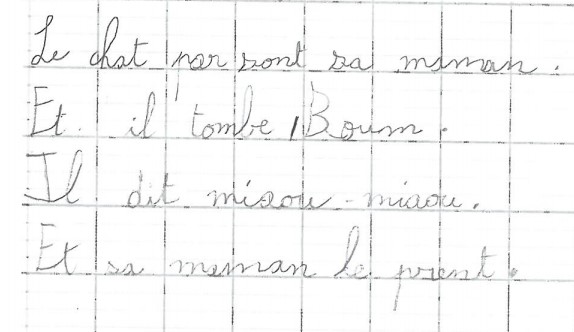 Le chat par sont sa maman.
Et il tombe, Boum.
Il dit miaou-miaou.
Et sa maman le prent.